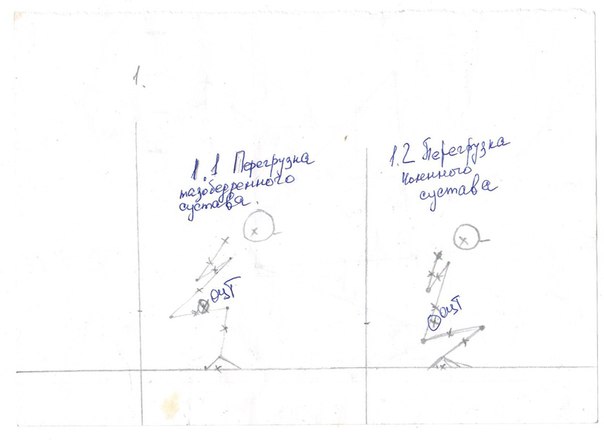 1.
1.1 Перегрузка
тазобедренного
сустава.
1.2 Перегрузка
коленного
сустава
ОЦТ
ОЦТ